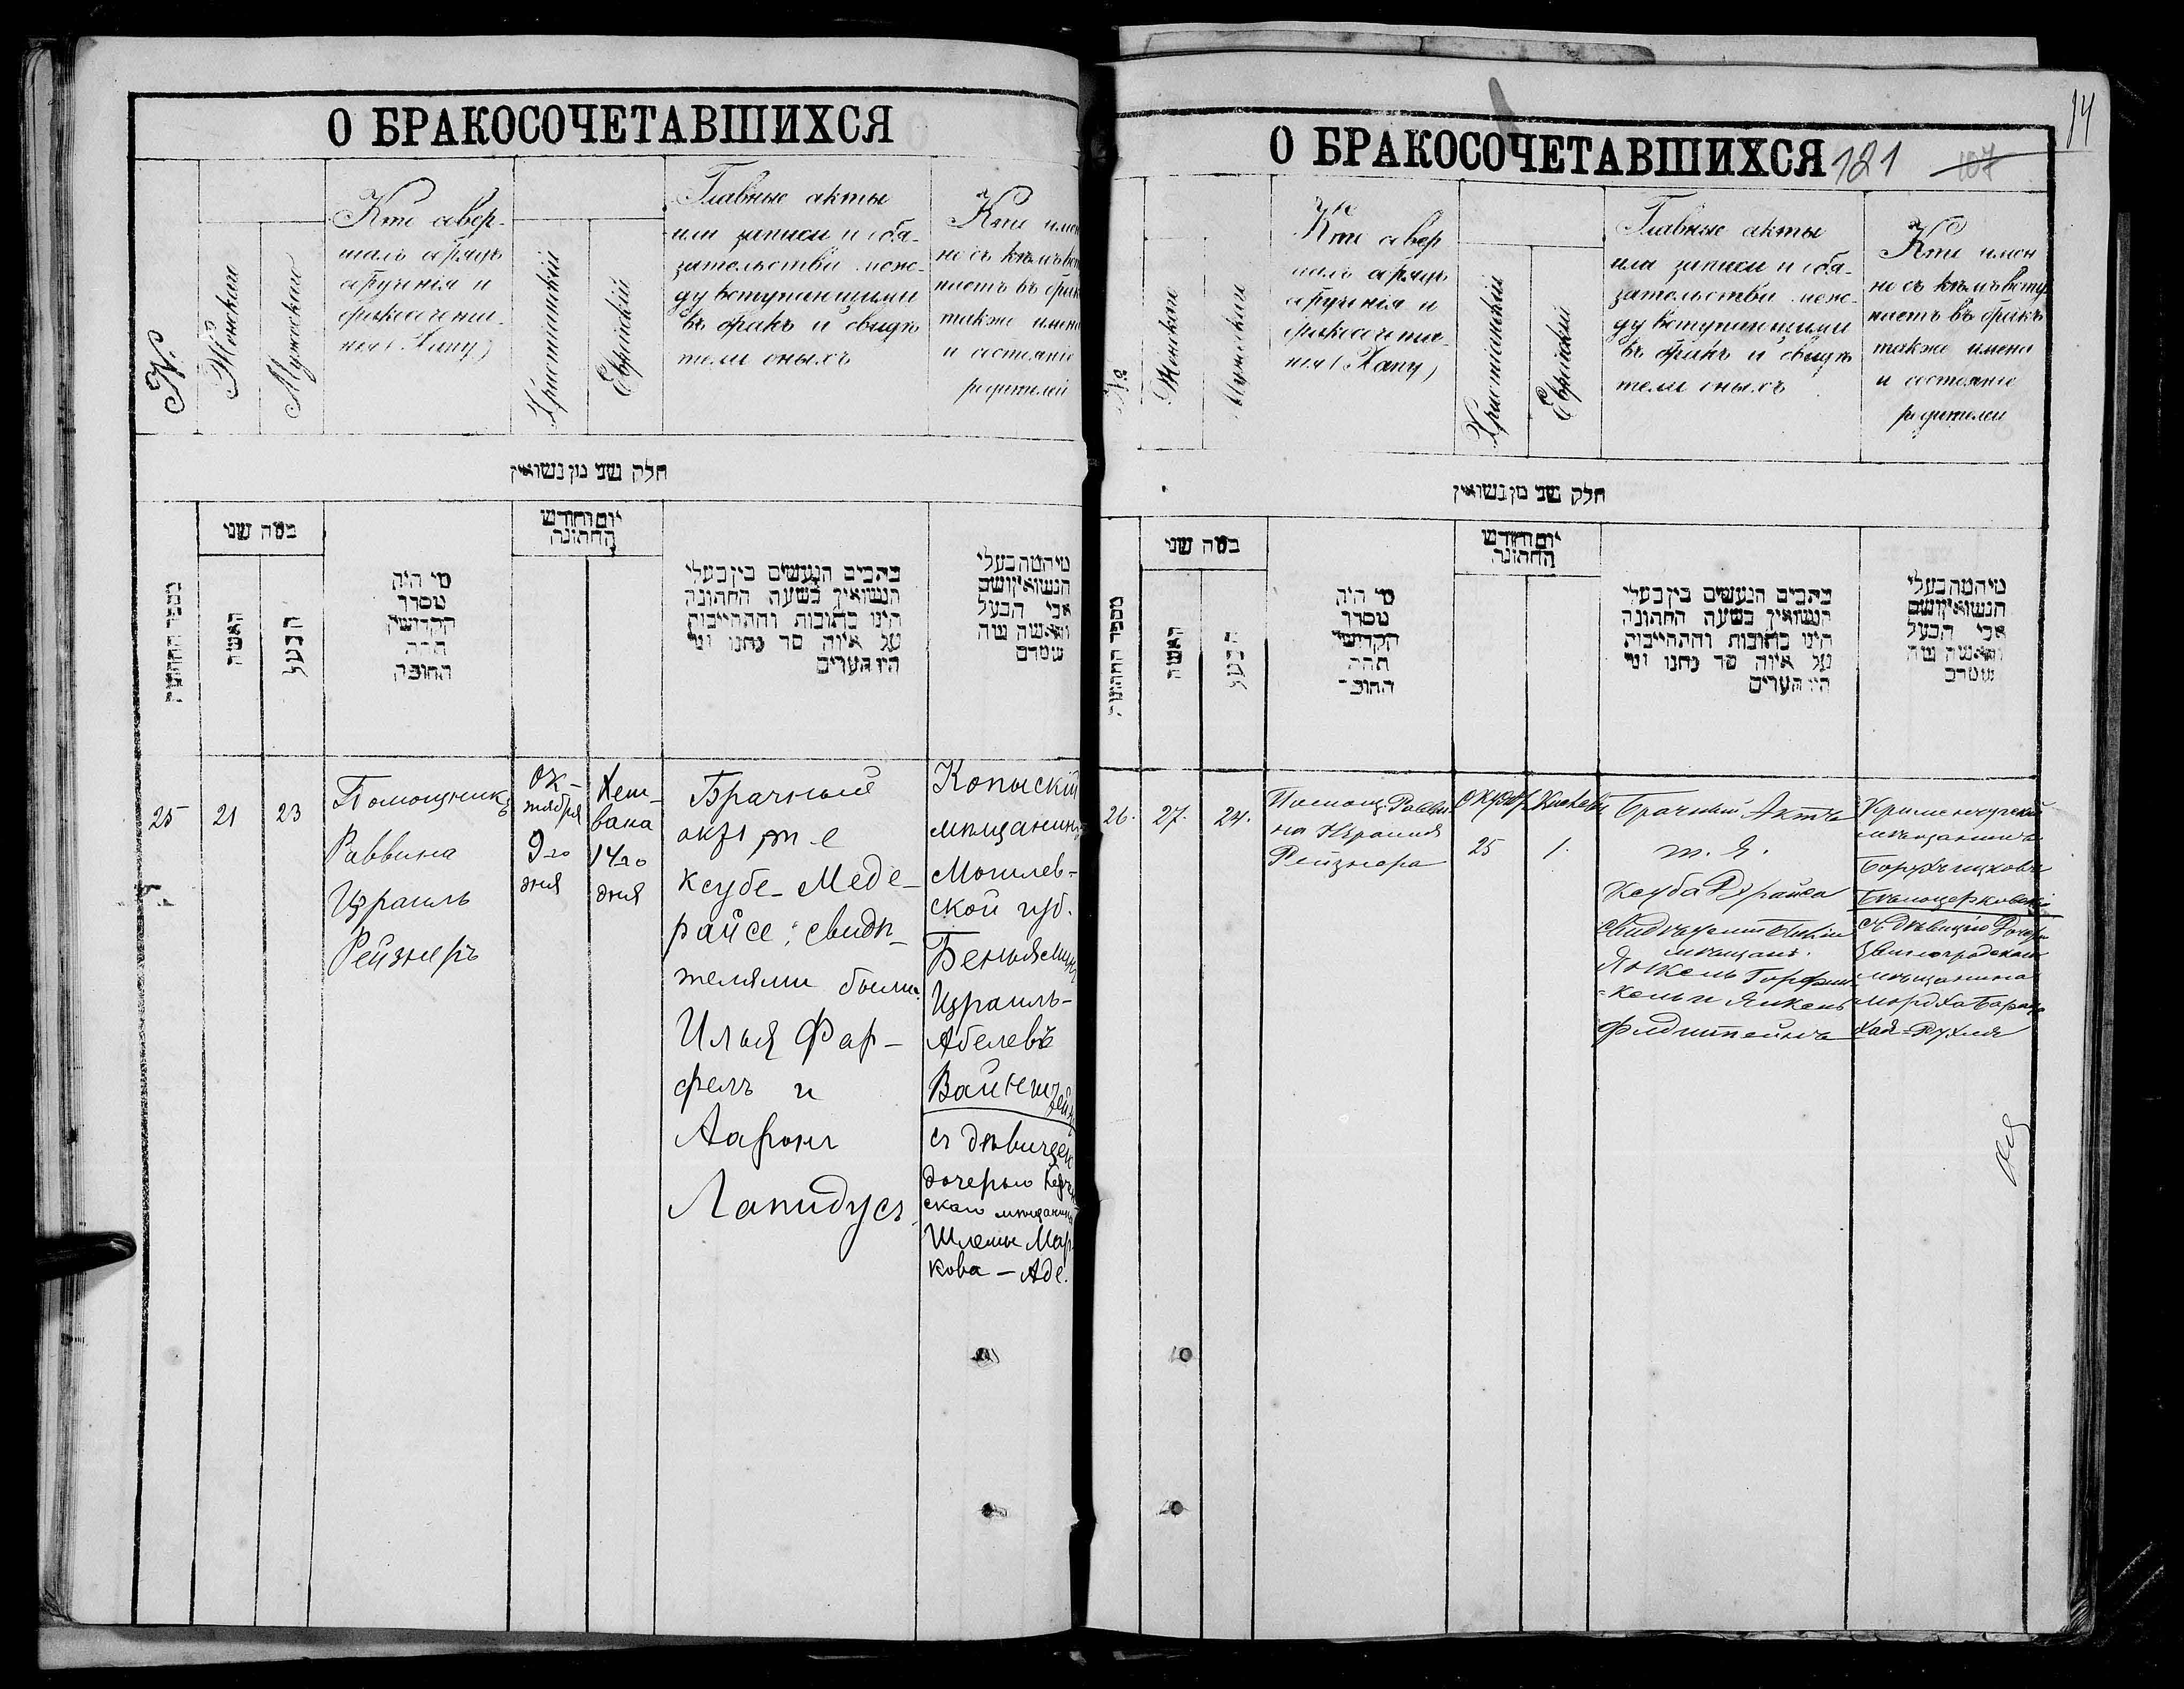 О БРАКОСОЧЕТАВШИХСЯ
№
Женскаго
Мужескаго
Кто совер-
шалъ обрядъ
обрученія и
бракосочета-
нія (Хапу)
Христіанскій
Еврейскій
Главные акты
или записи и обя-
зательства меж-
ду вступающими
въ бракъ и свидѣ-
тели оныхъ
Кто имен
но съ кѣмъ вст
паетъ въ брак
также имена
и состояніе
родителей
חלק שני מן נשואין
מספר החתונה
כמה שני
האשה
הבעל
מי היה
מסדר
הקדושין
תחת
החופה
יום וחודש
החתונה
כתבים הנעשים בין בעלי
הנשואין בשעה החתונה
היינו כתובות והתחייבות
על איזה סך נתנו ומי
היו העדים
מי המה בעלי
הנשואין ושם
אבי הבעל
והאשה
25
21
23
Помощникъ
Раввина
Израиль
Рейзнеръ
Ок-
тября
9го
дня
Хеш-
вана
14го
дня
Брачный
актъ, т. е
Ксубе-Меде-
райсе; свидѣ-
телями были
Илья Фар-
фелъ и
Ааронъ
Лапидусъ.
Копыскій
мѣщанинъ
Могилев-
ской губ.
Беньяминъ
Израиль-
Абелевъ
Вайнштейнъ
съ дѣвицею
дочерью
скаго мѣщанина
Шлемы Мар-
кова - Аде.
14
О БРАКОСОЧЕТАВШИХСЯ 121 107
№
Женскаго
Мужескаго
Кто совер
шалъ обрядъ
обрученія и
бракосочета-
нія (Хапу)
Христіанскій
Еврейскій
Главные акты
или записи и обя-
зательства меж-
ду вступающими
въ бракъ и свидѣ
тели оныхъ
Кто имен
но съ кѣмъ всту
паетъ въ бракъ
также имена
и состояніе
родителей
חלק שני מן נשואין
מספר החתונה
כמה שני
האשה
הבעל
מי היה
מסדר
הקדושין
תחת
החופה
יום וחודש
החתונה
כתבים הנעשים בין בעלי
הנשואין בשעה החתונה
היינו כתובות והתחייבות
על איזה סך נתנו ומי
היו העדים
מי המה בעלי
הנשואין ושם
אבי הבעל
והאשה
26.
27.
24.
Помощ. Равви
на Израиля
Рейзнера
25
1.
Брачный Актъ
т. е.
Ксуба Драйса
мѣщанъ.
Янкель
Янкель
Кременчугскій
мѣщанинъ
Борухъ
Бѣлоцерковскій
съ дѣвицею Дочерью
Звенигородскаго
мѣщанина
Мордха
Хая-Рухля